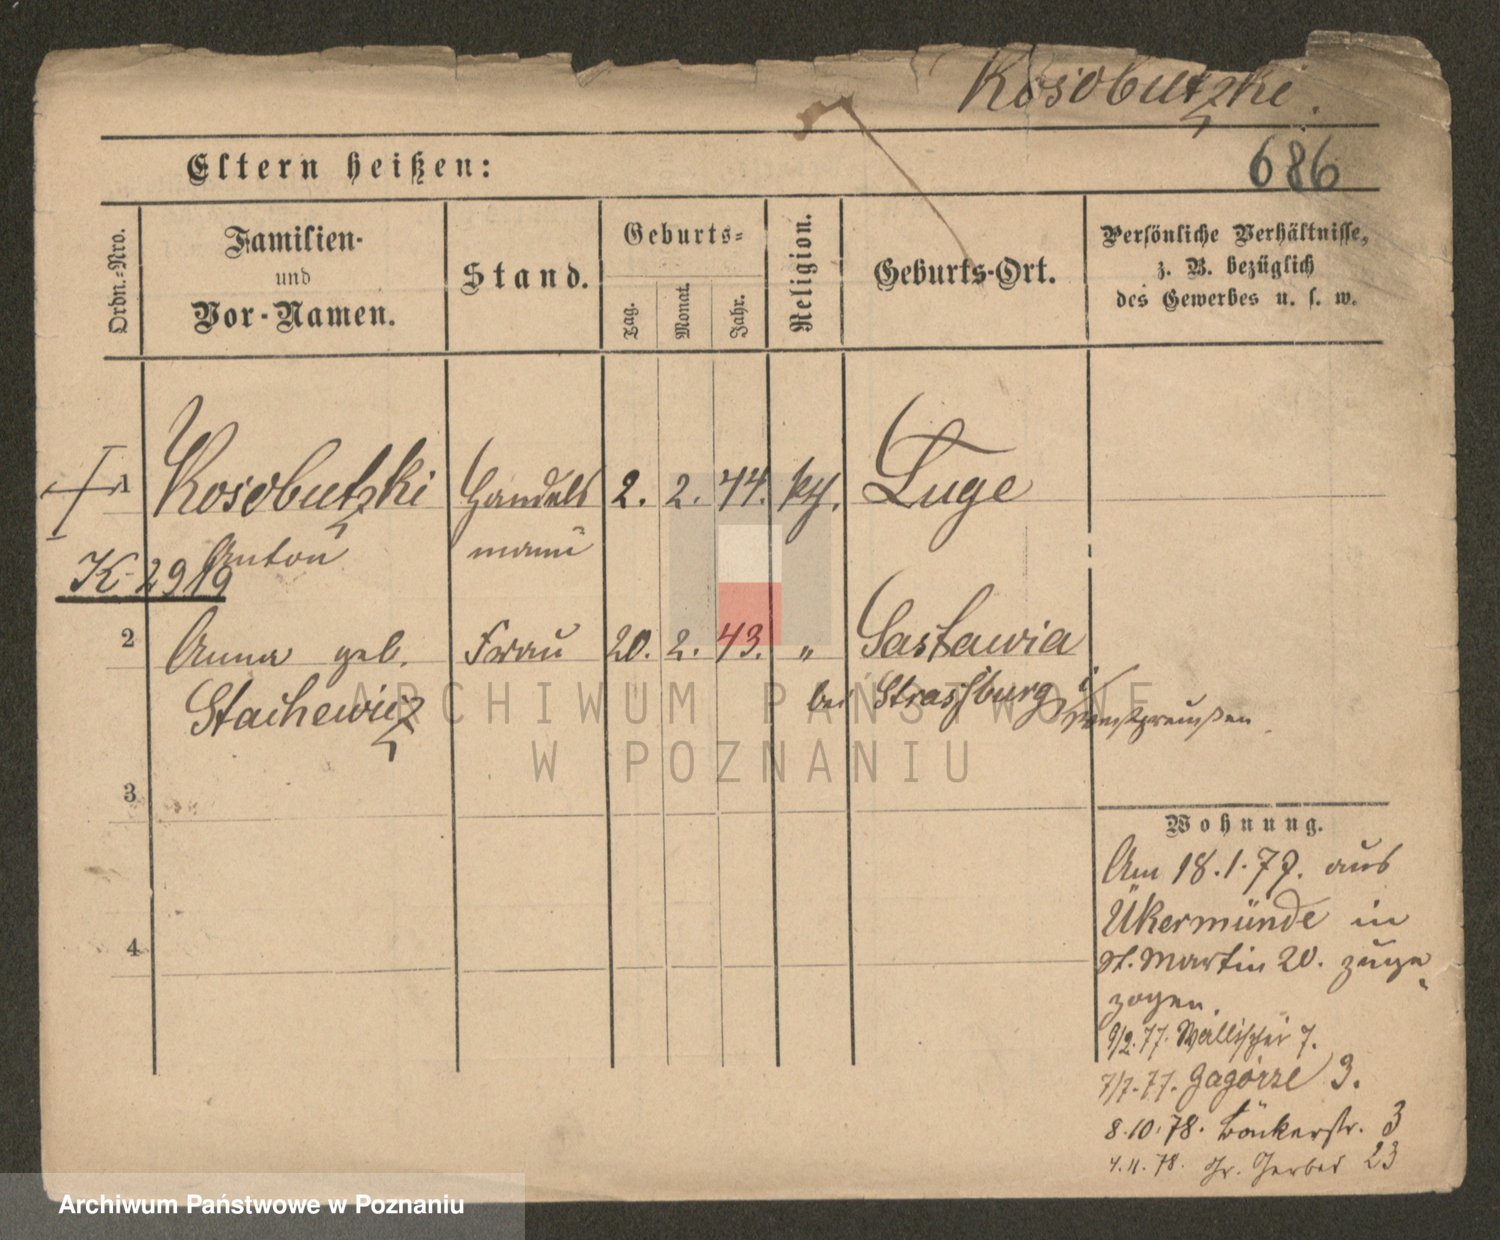 Kosobutzki.
Eltern heißen:
686
Ordn.-Nro.
Familien-
und
Vor-Namen.
Stand.
Geburts-
Tag.
Monat.
Jahr.
Religion.
Geburts-Ort.
Persönliche Verhältnisse,
z. B. bezüglich
des Gewerbes u. s. w.
1 Kosobutzki Handels 2. 2. 44. kth. Luge
Anton mann
K 2919
2 Anna geb. Frau 20. 2. 43. " Sastawia
Stachewicz bei Strassburg
Westpreußen
3
4
Wohnung.
Am 18.1.77. aus
Ükermünde in
St. Martin 20. zuge-
zogen.
9/2.77. Wallischei 7.
7/7.77. Zagorze 3.
8.10.78. Bäckerstr. 3
4.11.78. Gr. Gerber 23
ARCHIWUM PAŃSTWOWE
W POZNANIU
Archiwum Państwowe w Poznaniu